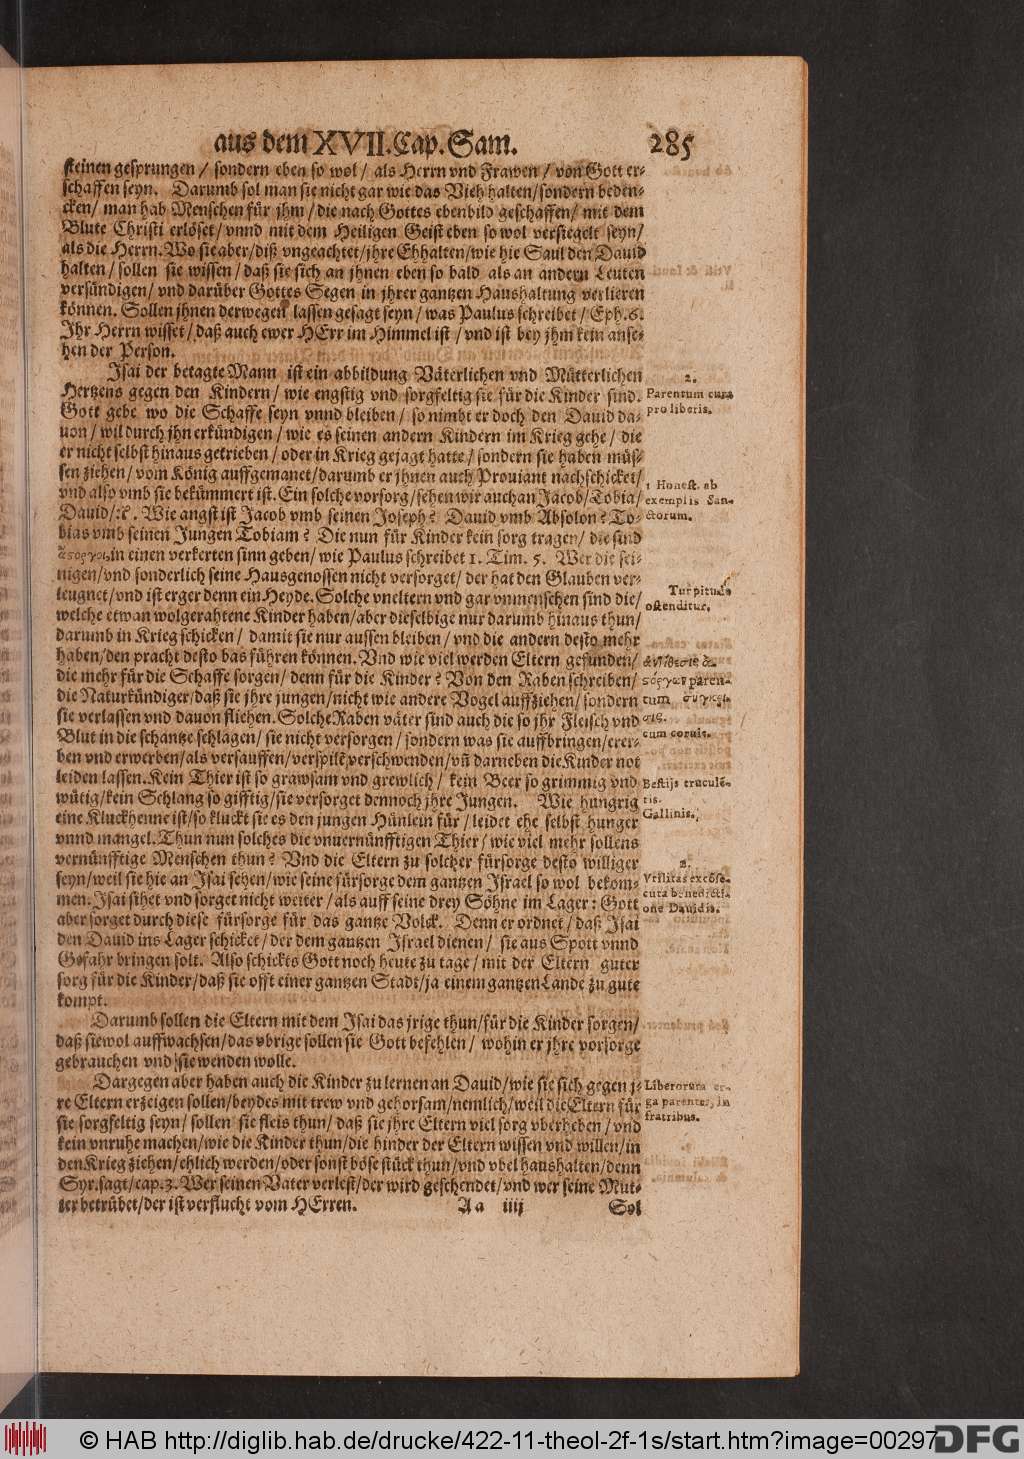 aus dem XVII. Cap. Sam. 285
steinen gesprungen / sondern eben so wol / als Herrn vnd Frawen / von Gott er-
schaffen seyn. Darumb sol man sie nicht gar wie das Vieh halten/sondern beden-
cken/ man hab Menschen für jhm / die nach Gottes ebenbild geschaffen/ mit dem
Blute Christi erlöset/ vnnd mit dem Heiligen Geist eben so wol versiegelt seyn/
als die Herrn. Wo sie aber/diß vngeachtet/jhre Ehhalten/wie hie Saul den Dauid
halten/ sollen sie wissen / daß sie sich an jhnen eben so bald als an andern Leuten
versündigen/ vnd darüber Gottes Segen in jhrer gantzen Haushaltung verlieren
können. Sollen jhnen derwegen lassen gesagt seyn/ was Paulus schreibet/ Eph. 6.
Ihr Herrn wisset/ daß auch ewer HErr im Himmel ist / vnd ist bey jhm kein anse-
hen der Person.
Isai der betagte Mann ist ein abbildung Väterlichen vnd Mütterlichen
Hertzens gegen den Kindern / wie engstig vnd sorgfeltig sie für die Kinder sind.
Gott gebe wo die Schaffe seyn vnnd bleiben / so nimbt er doch den Dauid da-
uon / wil durch jhn erkündigen / wie es seinen andern Kindern im Krieg gehe / die
er nicht selbst hinaus getrieben / oder in Krieg gejagt hatte / sondern sie haben müs-
sen ziehen / vom König auffgemanet/darumb er jhnen auch Prouiant nachschicket/
vnd also vmb sie bekümmert ist. Ein solche vorsorg/sehen wir auch an Jacob/Tobia/
Dauid/ꝛc. Wie angst ist Jacob vmb seinen Joseph? Dauid vmb Absolon? To-
bias vmb seinen Jungen Tobiam? Die nun für Kinder kein sorg tragen/ die sind
ἄςοργοι, in einen verkerten sinn geben/ wie Paulus schreibet 1. Tim. 5. Wer die sei-
nigen/vnd sonderlich seine Hausgenossen nicht versorget/ der hat den Glauben ver-
leugnet/vnd ist erger denn ein Heyde. Solche vneltern vnd gar vnmenschen sind die/
welche etwan wolgerahtene Kinder haben/aber dieselbige nur darumb hinaus thun/
darumb in Krieg schicken/ damit sie nur aussen bleiben / vnd die andern desto mehr
haben/den pracht desto bas führen können. Vnd wie viel werden Eltern gefunden/
die mehr für die Schaffe sorgen/ denn für die Kinder? Von den Raben schreiben/
die Naturkündiger/daß sie jhre jungen/nicht wie andere Vogel auffziehen/ sondern
sie verlassen vnd dauon fliehen. Solche Raben väter sind auch die so jhr Fleisch vnd
Blut in die schantze schlagen/ sie nicht versorgen / sondern was sie auffbringen/erer-
ben vnd erwerben/als versauffen/verspilē, verschwenden/vñ darneben die Kinder not
leiden lassen. Kein Thier ist so grawsam vnd grewlich / kein Beer so grimmig vnd
wütig/kein Schlang so gifftig/sie versorget dennoch jhre Jungen. Wie hungrig
eine Kluckhenne ist/so kluckt sie es den jungen Hünlein für / leidet ehe selbst hunger
vnnd mangel. Thun nun solches die vnuernünfftigen Thier / wie viel mehr sollens
vernünfftige Menschen thun? Vnd die Eltern zu solcher fürsorge desto williger
seyn/weil sie hie an Isai sehen/wie seine fürsorge dem gantzen Israel so wol bekom-
men. Isai sihet vnd sorget nicht weiter / als auff seine drey Söhne im Lager: Gott
aber sorget durch diese fürsorge für das gantze Volck. Denn er ordnet / daß Isai
den Dauid ins Lager schicket / der dem gantzen Israel dienen / sie aus Spott vnnd
Gefahr bringen solt. Also schickts Gott noch heute zu tage / mit der Eltern guter
sorg für die Kinder/daß sie offt einer gantzen Stadt/ja einem gantzen Lande zu gute
kompt.
Darumb sollen die Eltern mit dem Isai das jrige thun/für die Kinder sorgen/
daß sie wol auffwachsen/das vbrige sollen sie Gott befehlen / wohin er jhre vorsorge
gebrauchen vnd sie wenden wolle.
Dargegen aber haben auch die Kinder zu lernen an Dauid/wie sie sich gegen j-
re Eltern erzeigen sollen/beydes mit trew vnd gehorsam/nemlich/weil die Eltern für
sie sorgfeltig seyn/ sollen sie fleis thun/ daß sie jhre Eltern viel sorg vberheben / vnd
kein vnruhe machen/wie die Kinder thun/die hinder der Eltern wissen vnd willen/in
den Krieg ziehen/ehlich werden/oder sonst böse stück thun/vnd vbel haushalten/denn
Syr. sagt/cap. 3. Wer seinen Vater verlest/der wird geschendet/vnd wer seine Mut-
ter betrübet/der ist verflucht vom HErren. Aa iiij Sol
2.
Parentum cura
pro liberis.
1 Honest. ab
exemplis San-
ctorum.
Turpitudo
ostenditur,
ἀντίθεσις ἀ-
ςόργων paren-
tum
cum coruis.
Bestijs truculē-
tis.
Gallinis.
2.
Vtilitas excõse-
cuta benedicti-
one Dauidis.
Liberorum er-
ga parentes, in
fratribus.
© HAB http://diglib.hab.de/drucke/422-11-theol-2f-1s/start.htm?image=00297
DFG